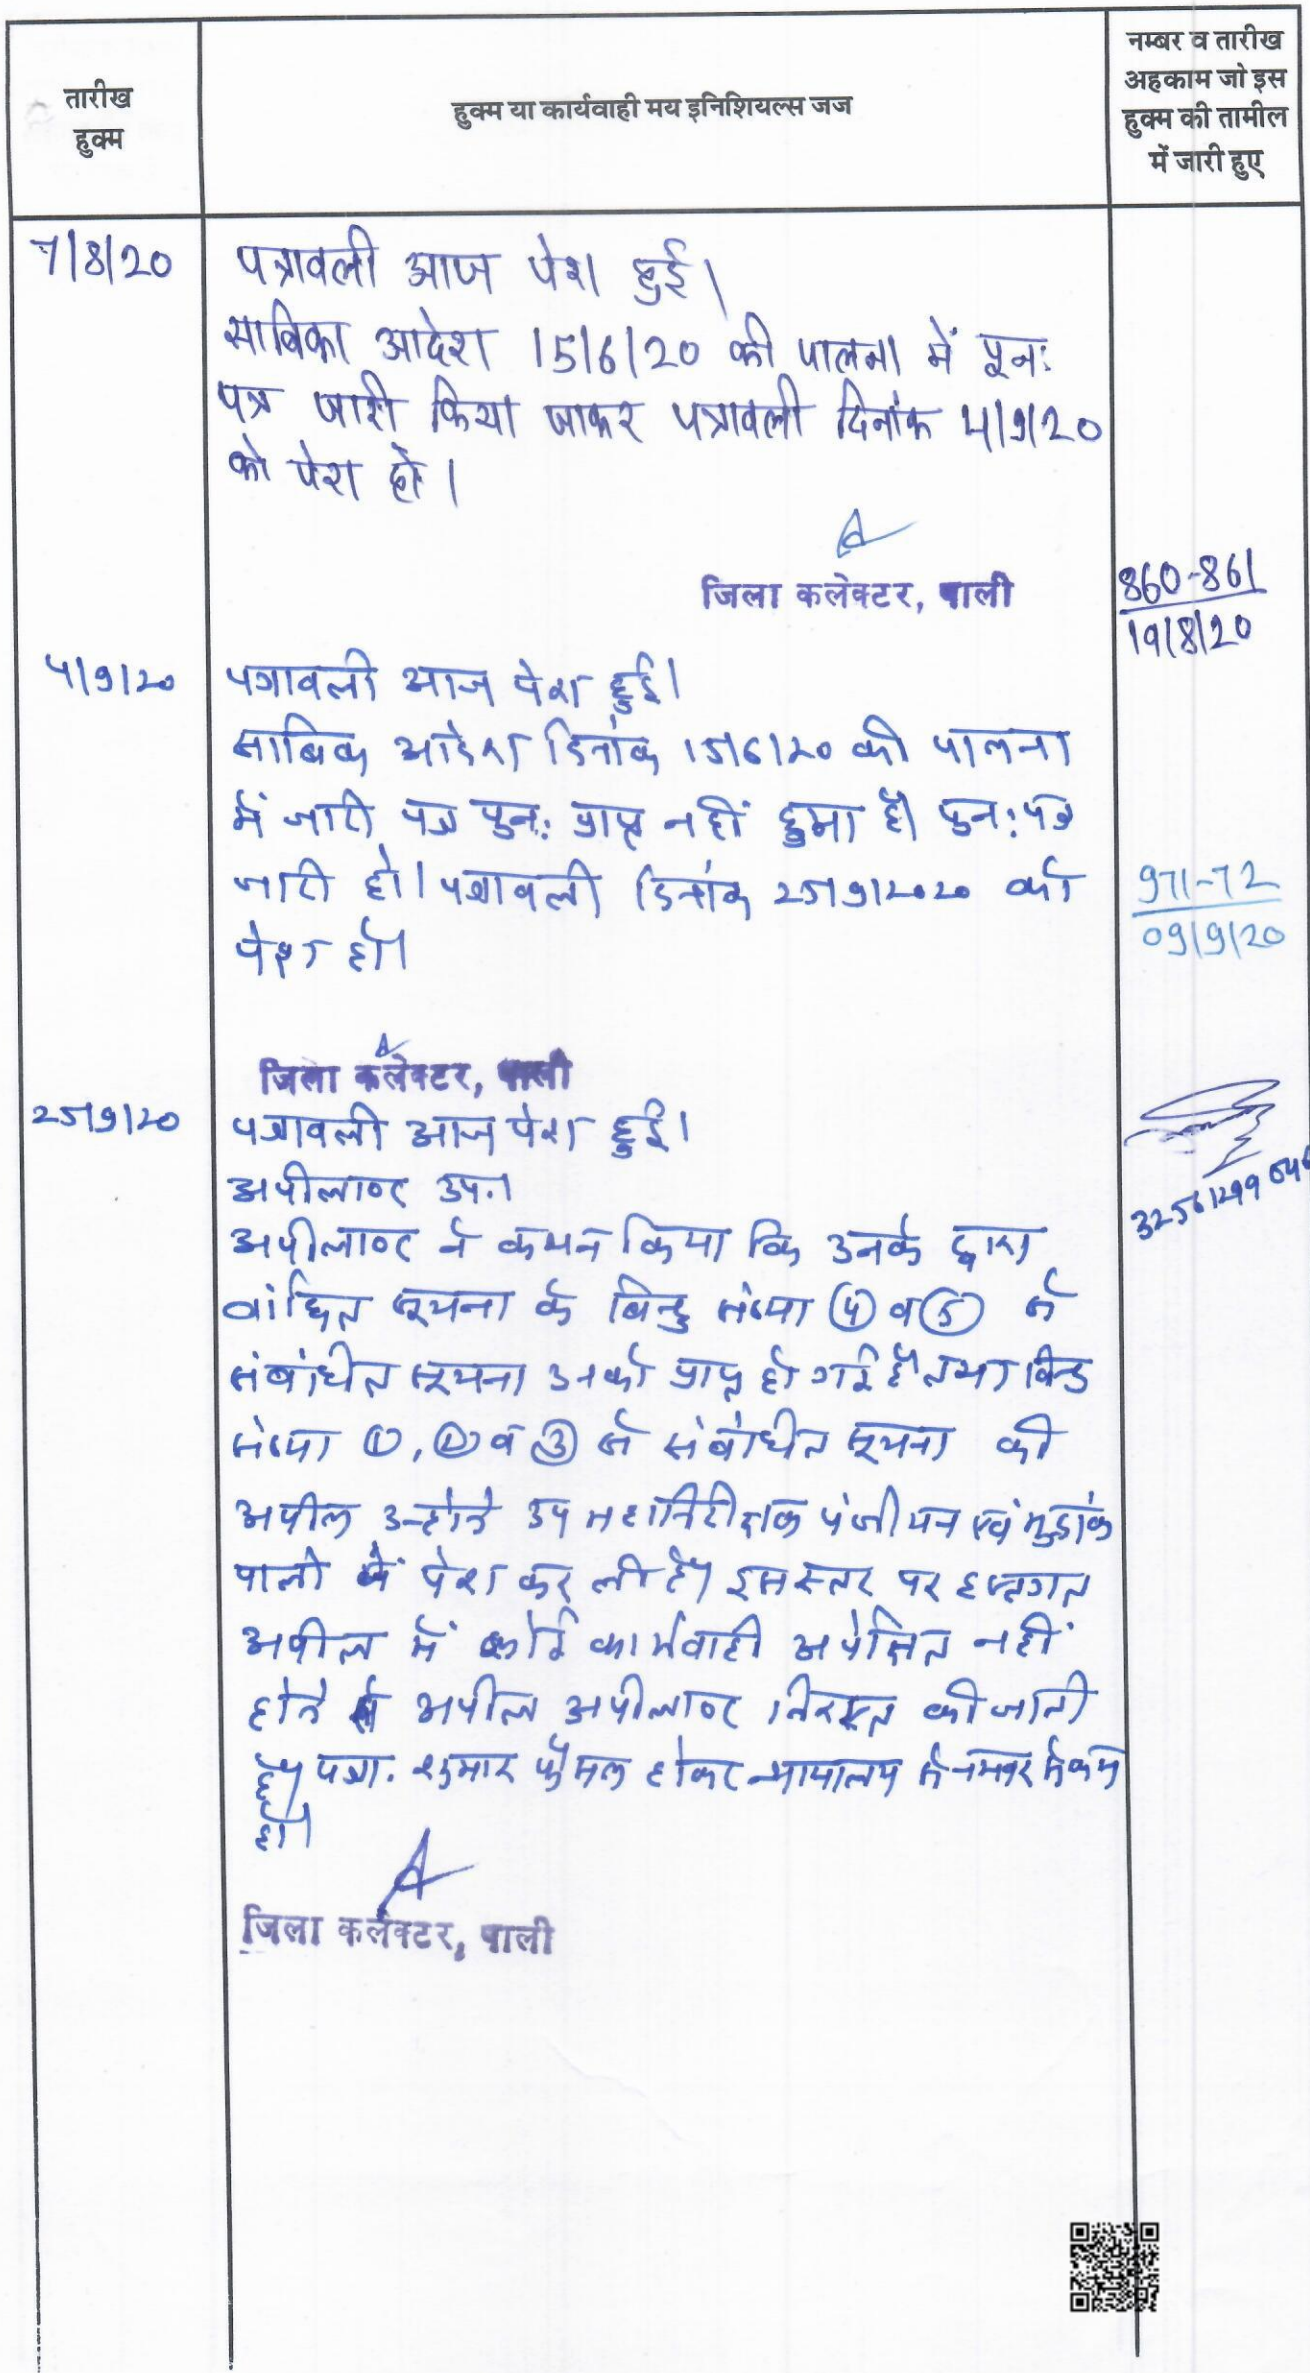 तारीख
हुक्म
हुक्म या कार्यवाही मय इनिशियल्स जज
नम्बर व तारीख
अहकाम जो इस
हुक्म की तामील
में जारी हुए
7/8/20
पत्रावली आज पेश हुई।
साबिका आदेश 15/6/20 की पालना में पुनः
पत्र जारी किया जाकर पत्रावली दिनांक 4/9/20
को पेश हो।
जिला कलेक्टर, पाली
860-861
19/8/20
4/9/20
पत्रावली आज पेश हुई।
साबिक आदेश दिनांक 15/6/20 की पालना
में जारी पत्र पुनः प्राप्त नहीं हुआ है। पुनः पत्र
जारी हो। पत्रावली दिनांक 25/9/2020 को
पेश हो।
971-72
09/9/20
जिला कलेक्टर, पाली
25/9/20
पत्रावली आज पेश हुई।
अपीलाण्ट उप.।
अपीलाण्ट ने कथन किया कि उनके द्वारा
वांछित सूचना के बिन्दु संख्या (4) व (5) से
संबंधित सूचना उनको प्राप्त हो गई है तथा बिन्दु
संख्या (1), (2) व (3) से संबंधित सूचना की
अपील उन्होंने उप महानिरीक्षक पंजीयन एवं मुद्रांक
पाली में पेश कर ली है। इस स्तर पर हस्तगत
अपील में कोई कार्यवाही अपेक्षित नहीं
होने से अपील अपीलाण्ट निरस्त की जाती
है। पत्रा. शुमार फैसल होकर न्यायालय से नम्बर से कम
हो।
जिला कलेक्टर, पाली